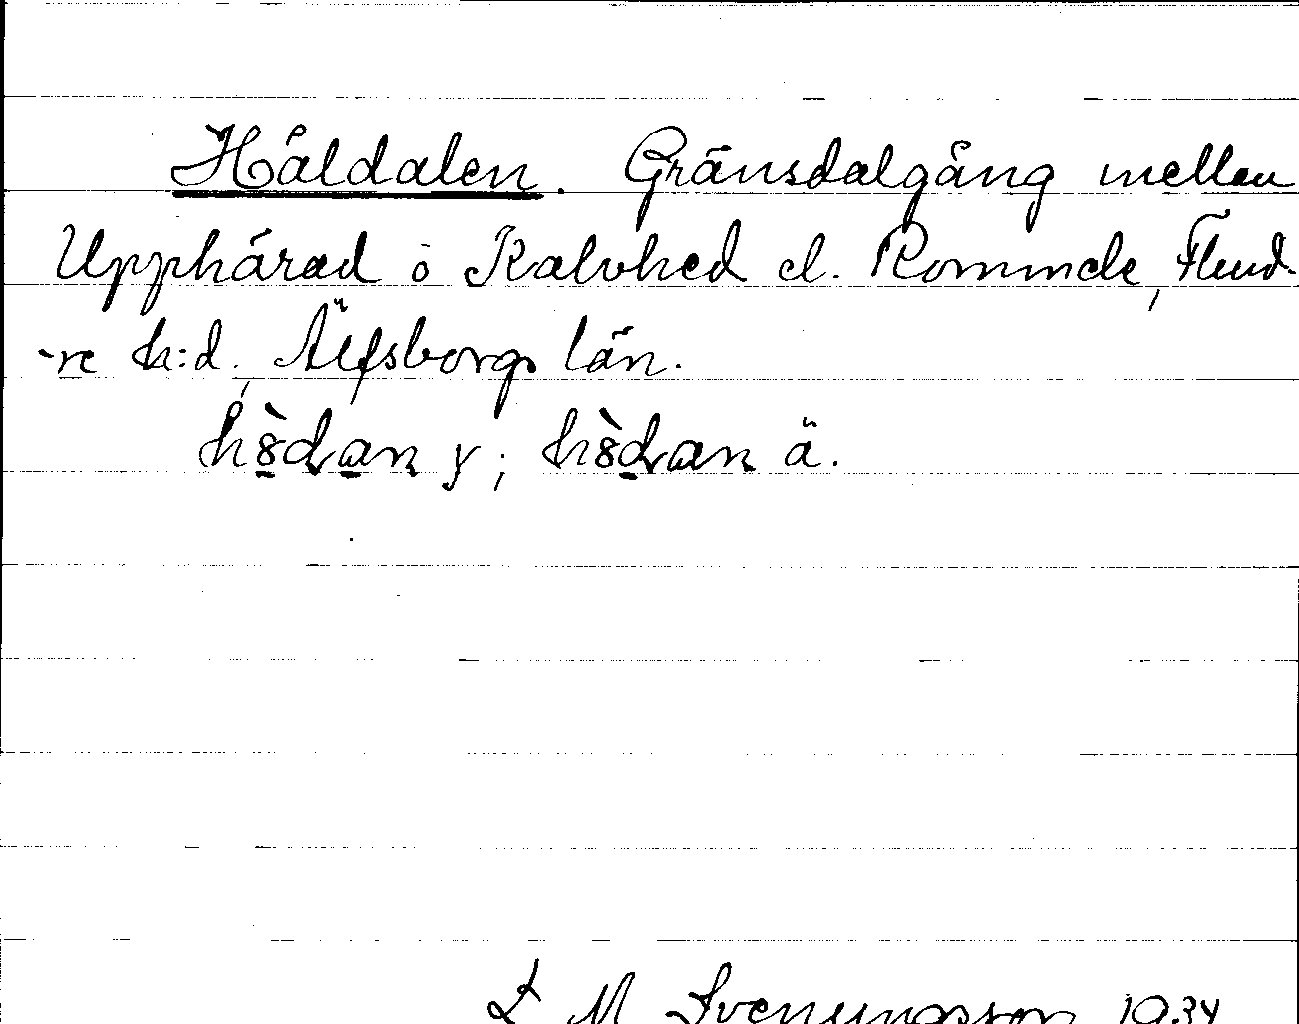 Håldalen. Gränsdalgång mellan
Upphärad o Kalvhed d. Rommele, Flund-
-re h:d, Älfsborgs län.
hòdan y; hòdan ä.
M Svenungsson 1934